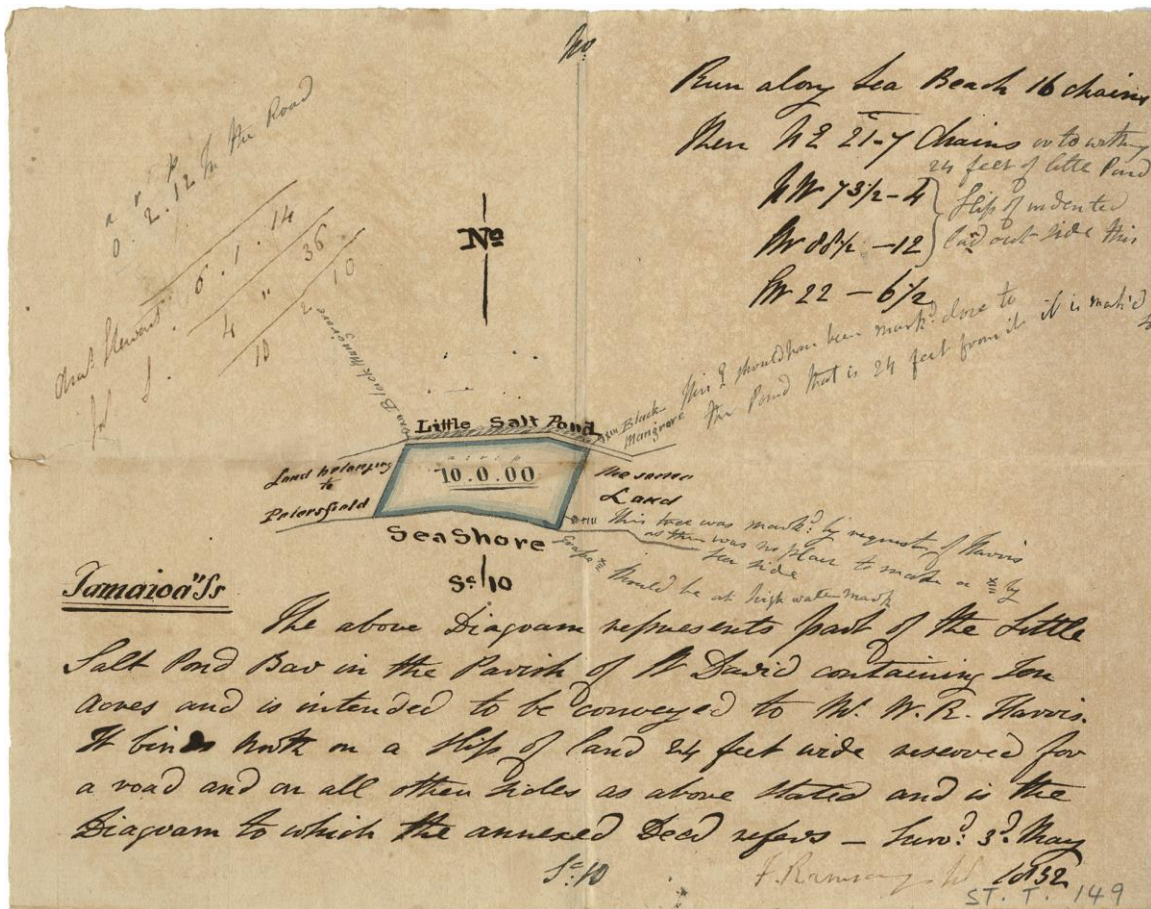 No
Run along Sea Beach 16 chains
Then NE 21-7 Chains or to within
24 feet of little Pond
NW 73½-4
Slip of indented
NW 88½-12
land out side this
SW 22-6½
a r p
0.2.12 In the Road
6.1.14
4 " 36
10 2 10
No
Black Mangrove
This should have been mark'd close to
the Pond that is 24 feet from it it is mark'd
Black
Mangrove
Little Salt Pond
a r p
10.0.00
Land belonging
to
Petersfield
the same
Land
This tree was mark'd by request of Harris
as there was no place to mark a by
sea side
Sea Shore
should be at high water mark
Sc/10
Jamaica" Ss
The above Diagram represents part of the Little
Salt Pond Bar in the Parish of St David containing Ten
Acres and is intended to be conveyed to Mr. W. R. Harris.
It binds North on a Slip of land 24 feet wide reserved for
a road and on all other sides as above stated and is the
Diagram to which the annexed Deed refers — Survd. 3d. May
Sc:10
F. Ramsay
ST. T. 149